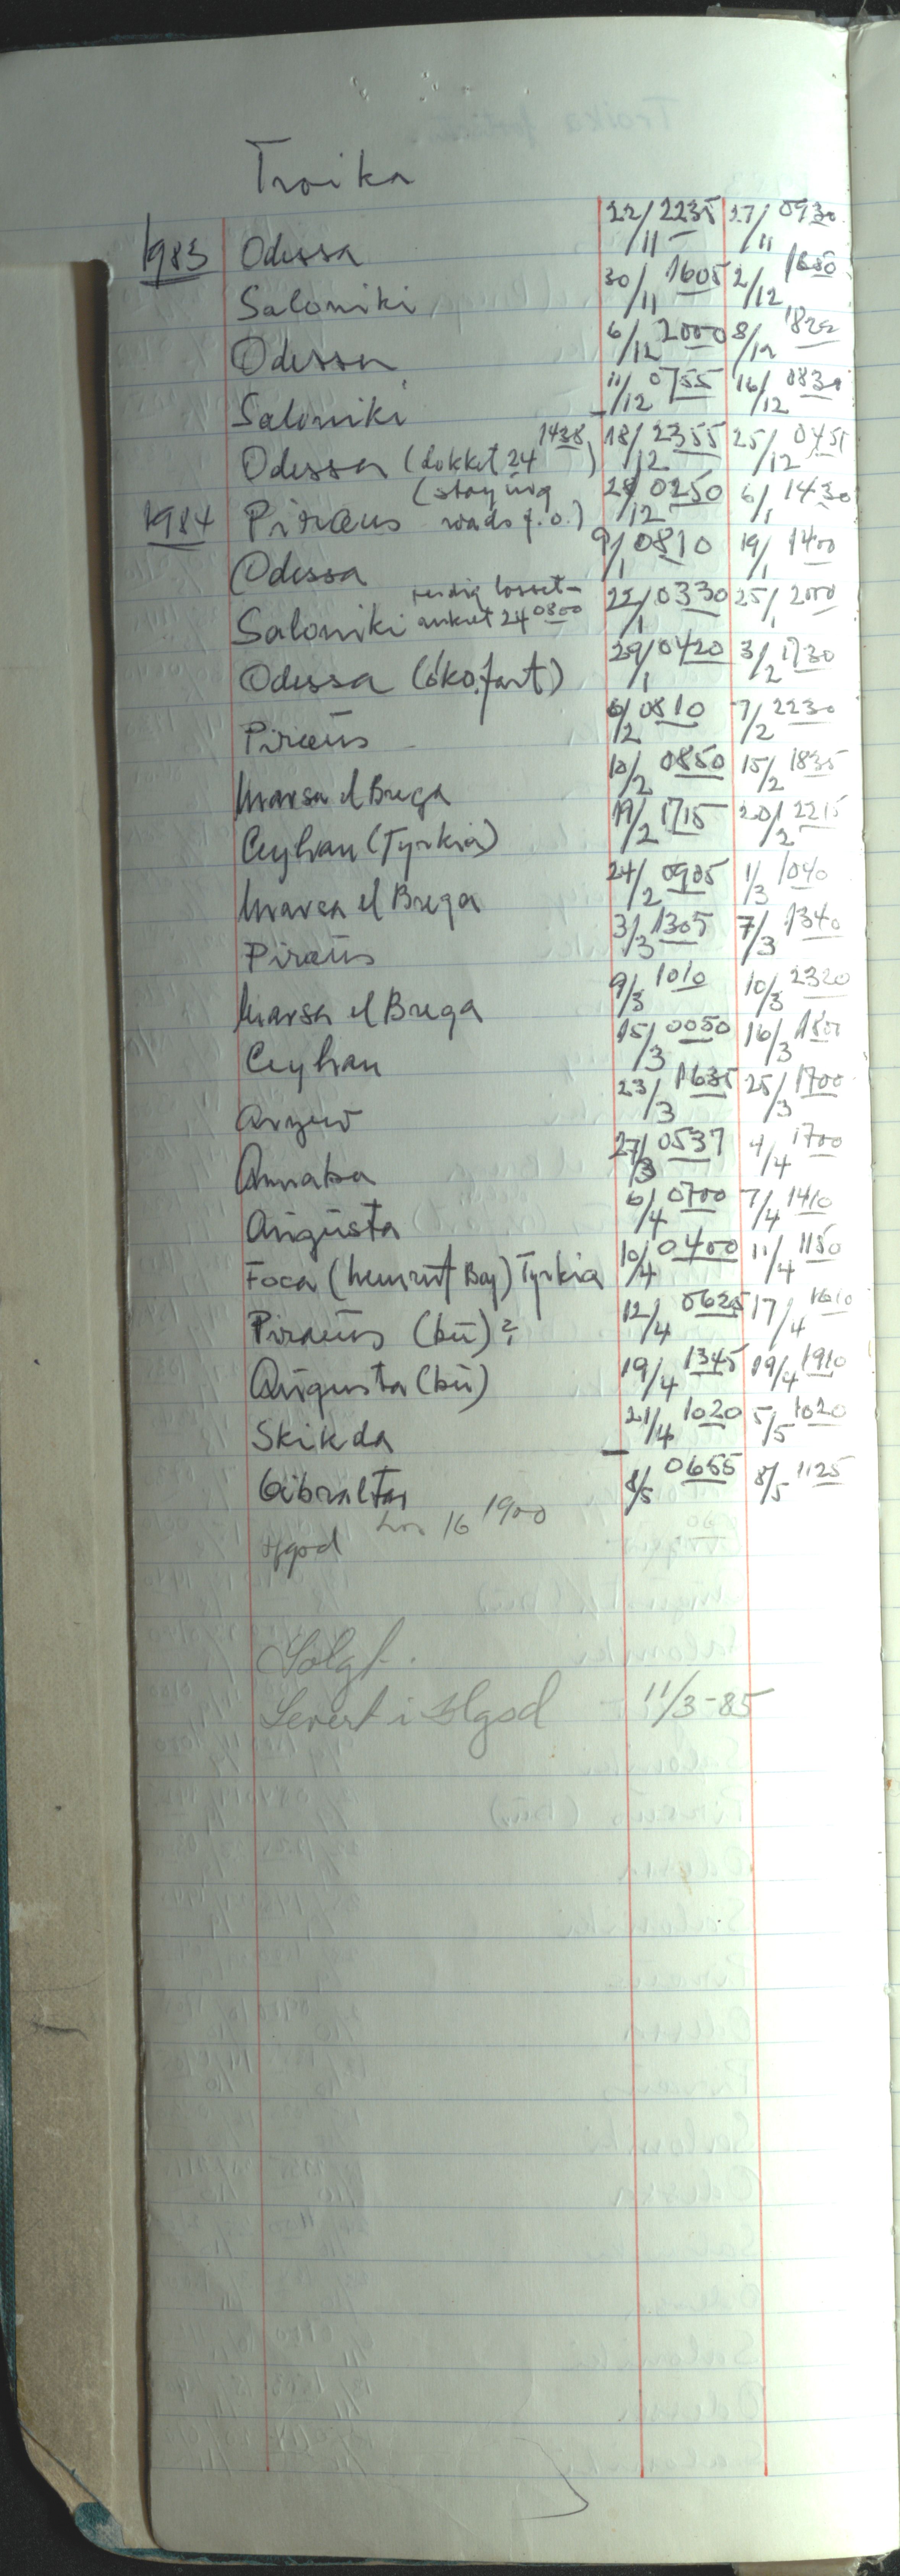 Troika
1983 Odessa 22/11 2235 27/11 0930
Saloniki 30/11 1605 2/12 1650
Odessa 6/12 2000 8/12
Saloniki 11/12 0755 16/12 0830
Odessa (dokket 24 1438) 18/12 2355 25/12 0455
1984 Piræus (staying roads f.o.) 28/12 0250 6/1 1430
Odessa 9/1 0810 19/1 1400
Saloniki ferdig losset - ankret 24 0800 22/1 0330 25/1 2000
Odessa (öko.fart) 29/1 0420 3/2 1730
Piræus 6/2 0810 7/2 2230
Marsa el Brega 10/2 0850 15/2 1835
Ceyhan (Tyrkia) 19/2 1715 20/2 2215
Marsa el Brega 24/2 0905 1/3 1040
Piræus 3/3 1305 7/3 1340
Marsa el Brega 9/3 1010 10/3 2320
Ceyhan 15/3 0050 16/3 1800
Arzew 23/3 1635 25/3 1700
Annaba 27/3 0537 4/4 1700
Augusta 6/4 0700 7/4 1410
Foca (Bay) Tyrkia 10/4 0400 11/4 1150
Piræus (bü)? 12/4 0625 17/4 1610
Augusta (bü) 19/4 1345 19/4 1910
Skikda 21/4 1020 5/5 1020
Gibraltar 8/5 0655 8/5 1125
16 1900
Solgt.
Levert i 11/3-85